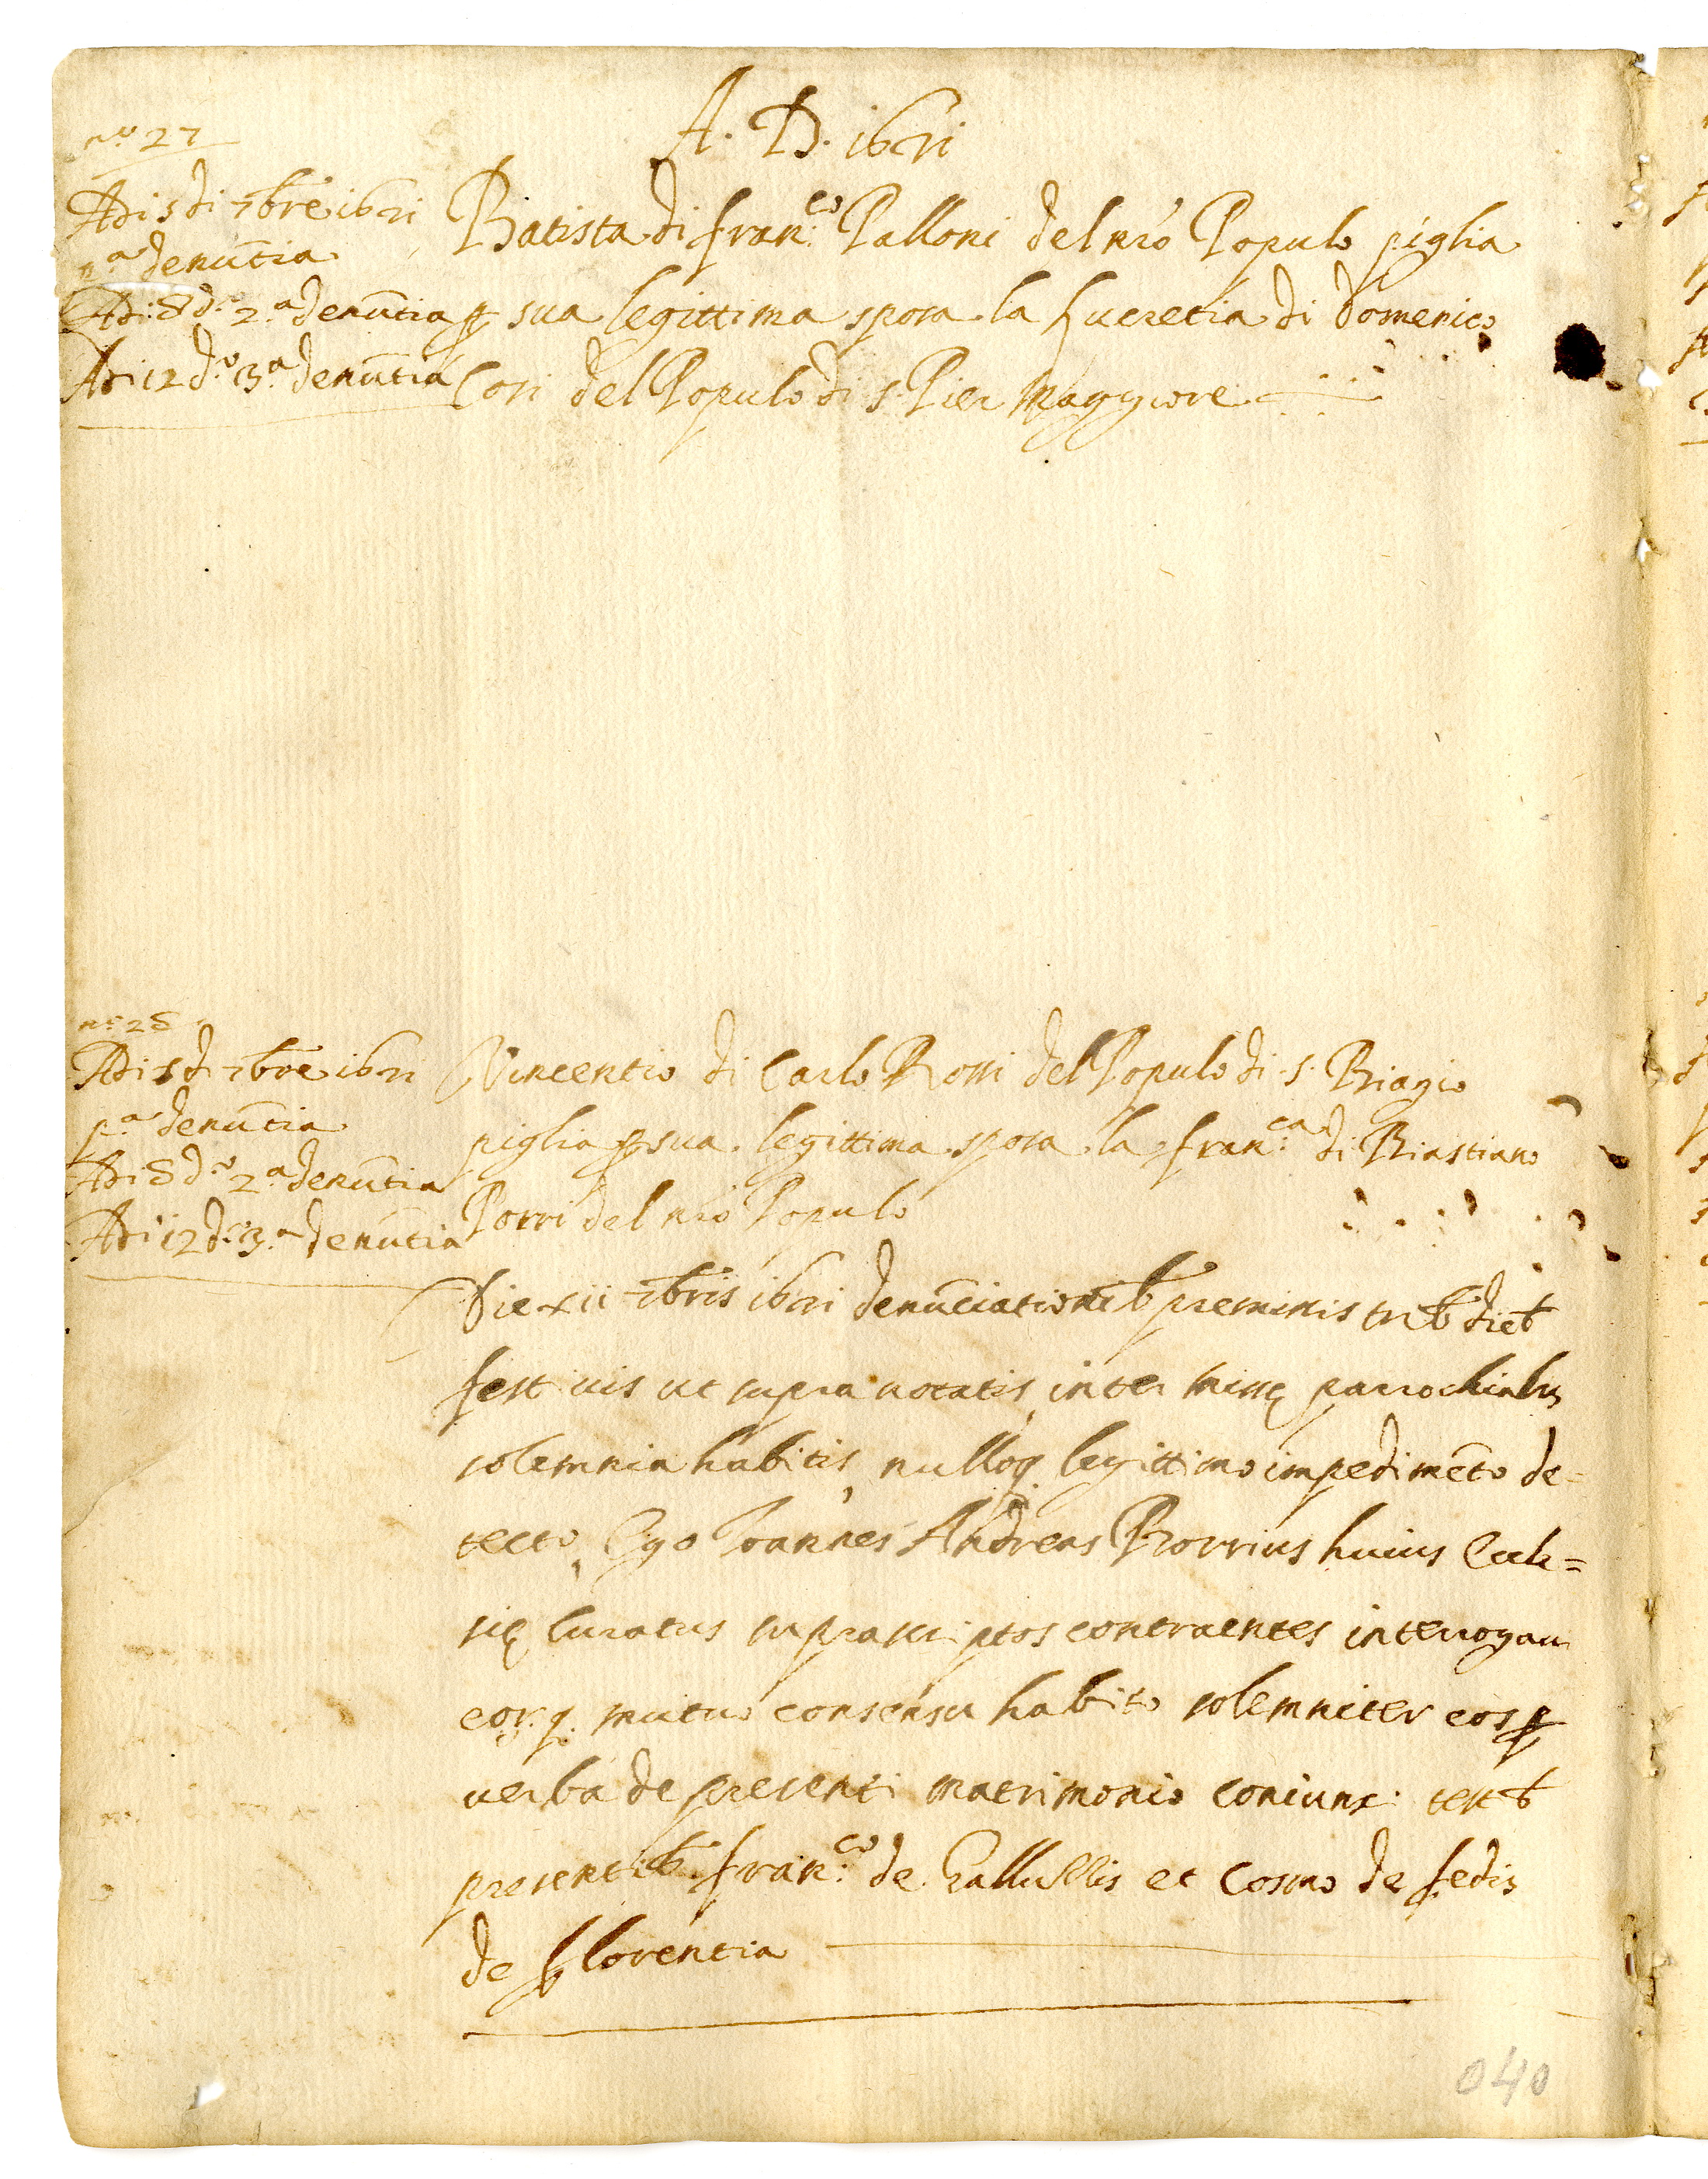 A. D. 1621
n.º 27
Adi 5 di 7bre 1621
p.ª denūtia
Adi 8 d.º 2.ª denūtia
Adi 12 d.º 3.ª denūtia
Batista di Fran:co Palloni del nrõ Populo piglia
ꝑ sua legittima sposa la Lucretia di Domenico
Cosi del Populo di S. Pier Maggiore
n.º 28
Adi 5 d 7bre 1621
p.ª denūtia
Adi 8 d.º 2.ª denūtia
Adi 12 d.º 3.ª denūtia
Vincentio di Carlo Rossi del Populo di S. Biagio
piglia ꝑ sua legittima sposa la Fran:ca di Biastiano
Porri del nrõ Populo
Die xii 7bris 1621 denūciationib premissis trib dieb
festiuis ut supra notatis, inter missę parrochialis
solemnia habitis, nulloq legittimo impedimēto de=
tecto, Ego Joannes Andreas Porrius huius Eccle=
się Curatus suprascriptos contraentes interrogaui
eor.q. mutuo consensu habito solemniter eos ꝑ
uerba de presenti matrimonio coniunxi testib
presentib Fran:co de Gallullis et Cosmo de Fedis
de Florentia
040